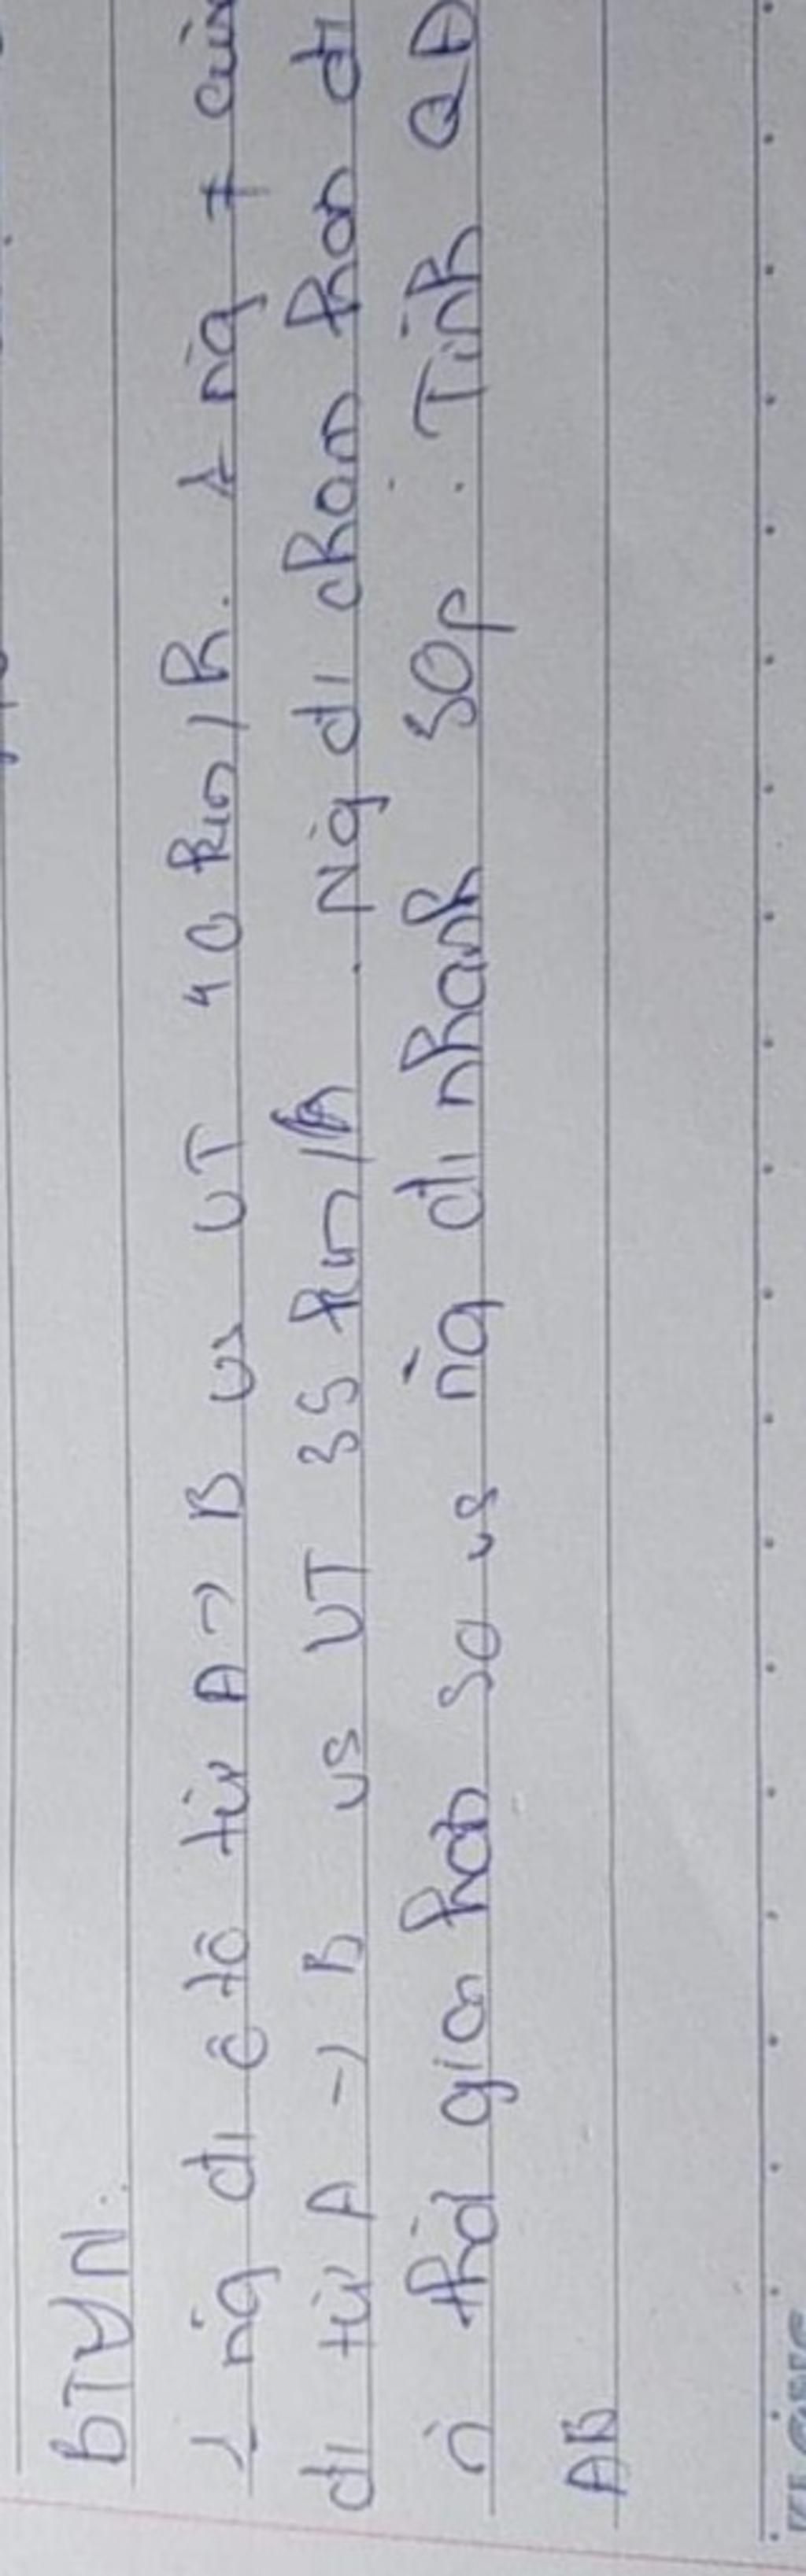 BTVN:
1 ng̀ đi ô tô từ A → B vs VT 40 km/h. 1 ng̀ ≠ cũn
đi từ A → B vs VT 35 km/h. Ng̀ đi chậm hơn đi
ǹ thời gian hơn so vs ng̀ đi nhanh 30p. Tính QĐ
AB